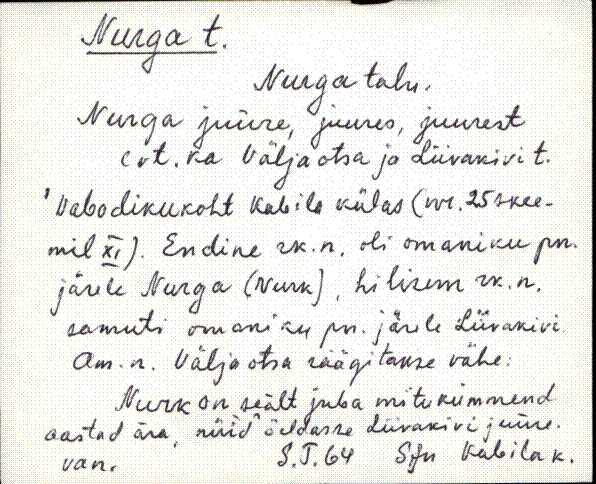 Nurga t.
Nurga talu.
Nurga juure, juures, juurest
(vt. ka Väljaotsa ja Liivakivi t.
'Vabadikukoht Kabila külas (nr. 25 skee-
mil XI). Endine rk.n. oli omaniku pn.
järele Nurga (Nurk), hilisem rk.n.
samuti omaniku pn. järele Liivakivi.
Am.n. Väljaotsa räägitakse vähe:
Nurk on seält juba mitukümmend
aastad ära, nüid öeldasse Liivakivi juure.
van. S.T. 64 Sjn Kabila k.